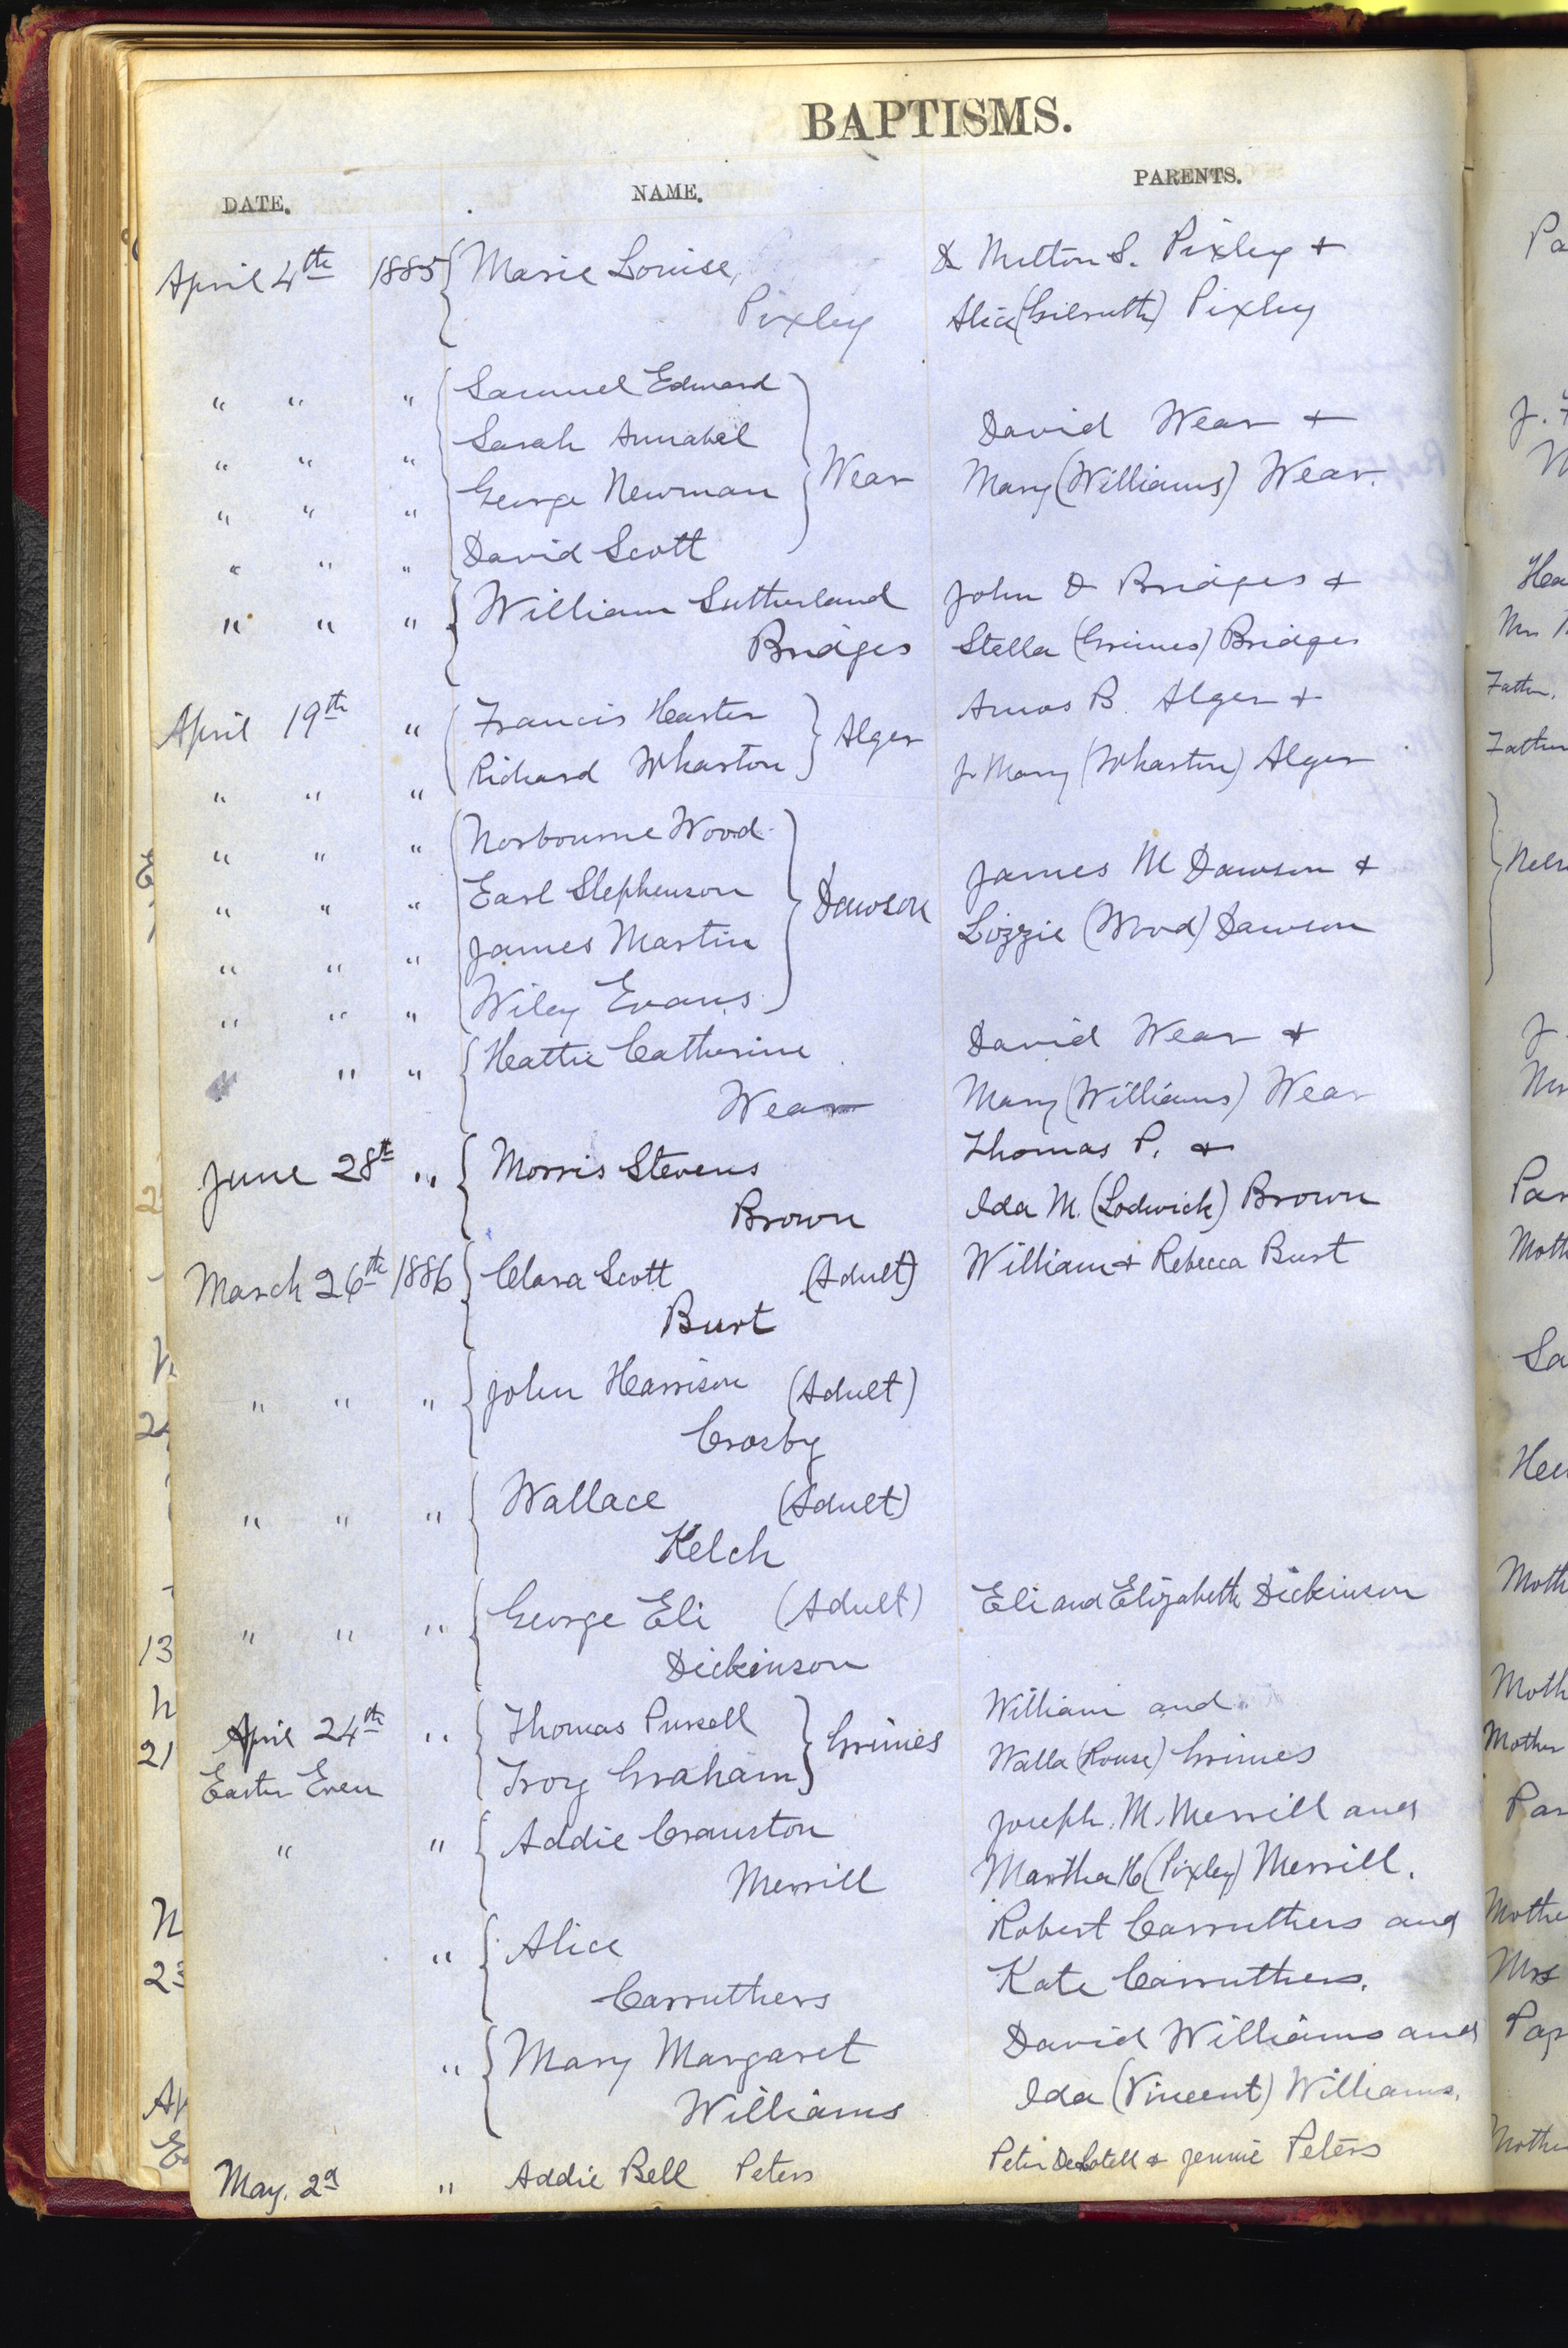 BAPTISMS.
DATE. NAME. PARENTS.
April 4th 1885 Marie Louise, & Milton S. Pixley +
Pixley Alice (Gilruth) Pixley
" " " Samuel Edward
" " " Sarah Annabel David Wear +
" " " George Newman Wear Mary (Williams) Wear.
" " " David Scott
" " " William Sutherland John D Bridges +
Bridges Stella (Grimes) Bridges
April 19th " Francis Harter Alger Amos B. Alger +
" " " Richard Wharton Mary (Wharton) Alger
" " " Norbourne Wood
" " " Earl Stephenson Dawson James M Dawson +
" " " James Martin Lizzie (Wood) Dawson
" " " Wiley Evans
" " " Hattie Catherine David Wear +
Wear Mary (Williams) Wear
June 28th " Morris Stevens Thomas P. +
Brown Ida M. (Lodwick) Brown
March 26th 1886 Clara Scott (Adult) William + Rebecca Burt
Burt
" " " John Harrison (Adult)
Crosby
" " " Wallace (Adult)
Kelch
" " " George Eli (Adult) Eli and Elizabeth Dickinson
Dickinson
April 24th " Thomas Pursell Grimes William and
Easter Even Troy Graham Walla (Rouse) Grimes
" " Addie Cranston Joseph. M. Merrill and
Merrill Martha H (Pixley) Merrill.
" Alice Robert Carruthers and
Carruthers Kate Carruthers.
" Mary Margaret David Williams and
Williams Ida (Vincent) Williams.
May. 2d " Addie Bell Peters Peter DeLotell + Jennie Peters